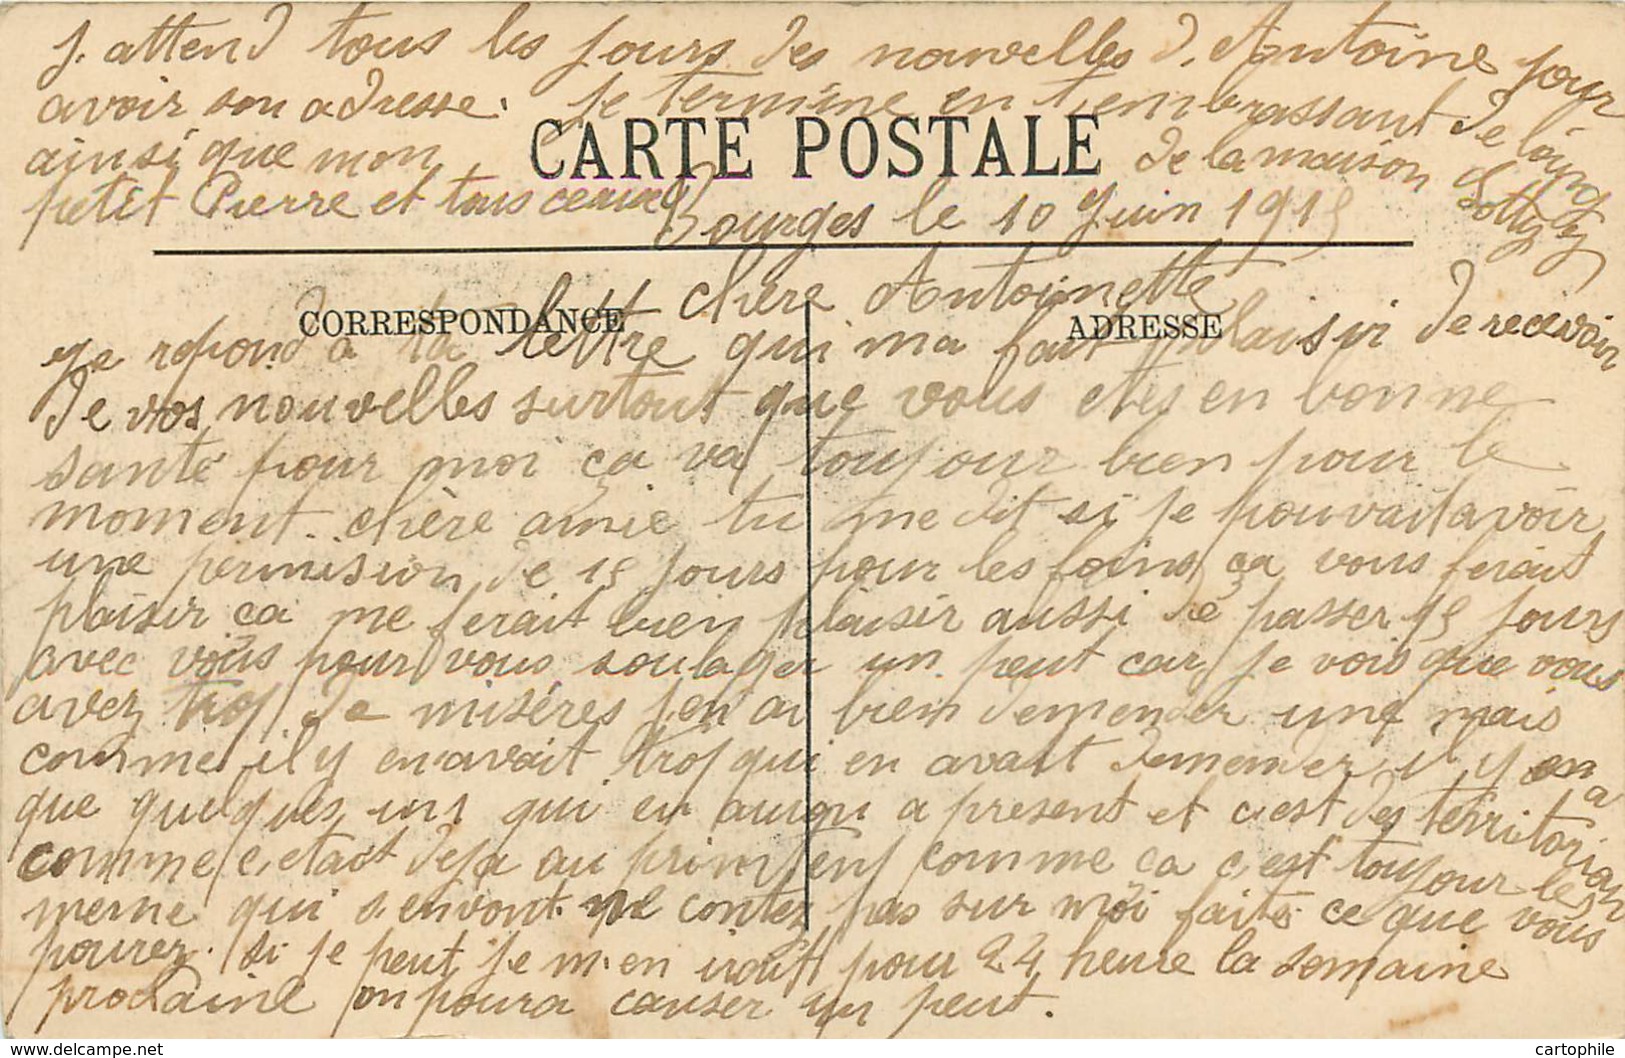 Bourges le 10 Juin 1915
chère Antoinette
CARTE POSTALE
CORRESPONDANCE
ADRESSE
Je repond a ta lettre qui ma fait plaisir de recevoir
de vos nouvelles surtout que vous etes en bonne
santé pour moi ça va toujour bien pour le
moment. chère amie tu me dit si je pouvait avoir
une permision de 15 jours pour les foins ça vous ferait
plaisir ça me ferait bien plaisir aussi de passer 15 jours
avec vous pour vous soulager un peut car je vois que vous
avez trop de misères j'en ai bien demender une mais
comme il y en avait trop qui en avait demender il y en a
que quelques uns qui en auron a present et c'est des territorian
comme c'etait deja au printemp comme ça c'est toujour les
meme qui s'envont ne contez pas sur moi faite ce que vous
pourez. si je peut je m'en irait pour 24 heure la semaine
prochaine on poura causer un peut.
j'attend tous les jours des nouvelles d'Antoine pour
avoir son adresse. je termine en t'embrassant de loing
ainsi que mon
petit Pierre et tous ceaux
de la maison